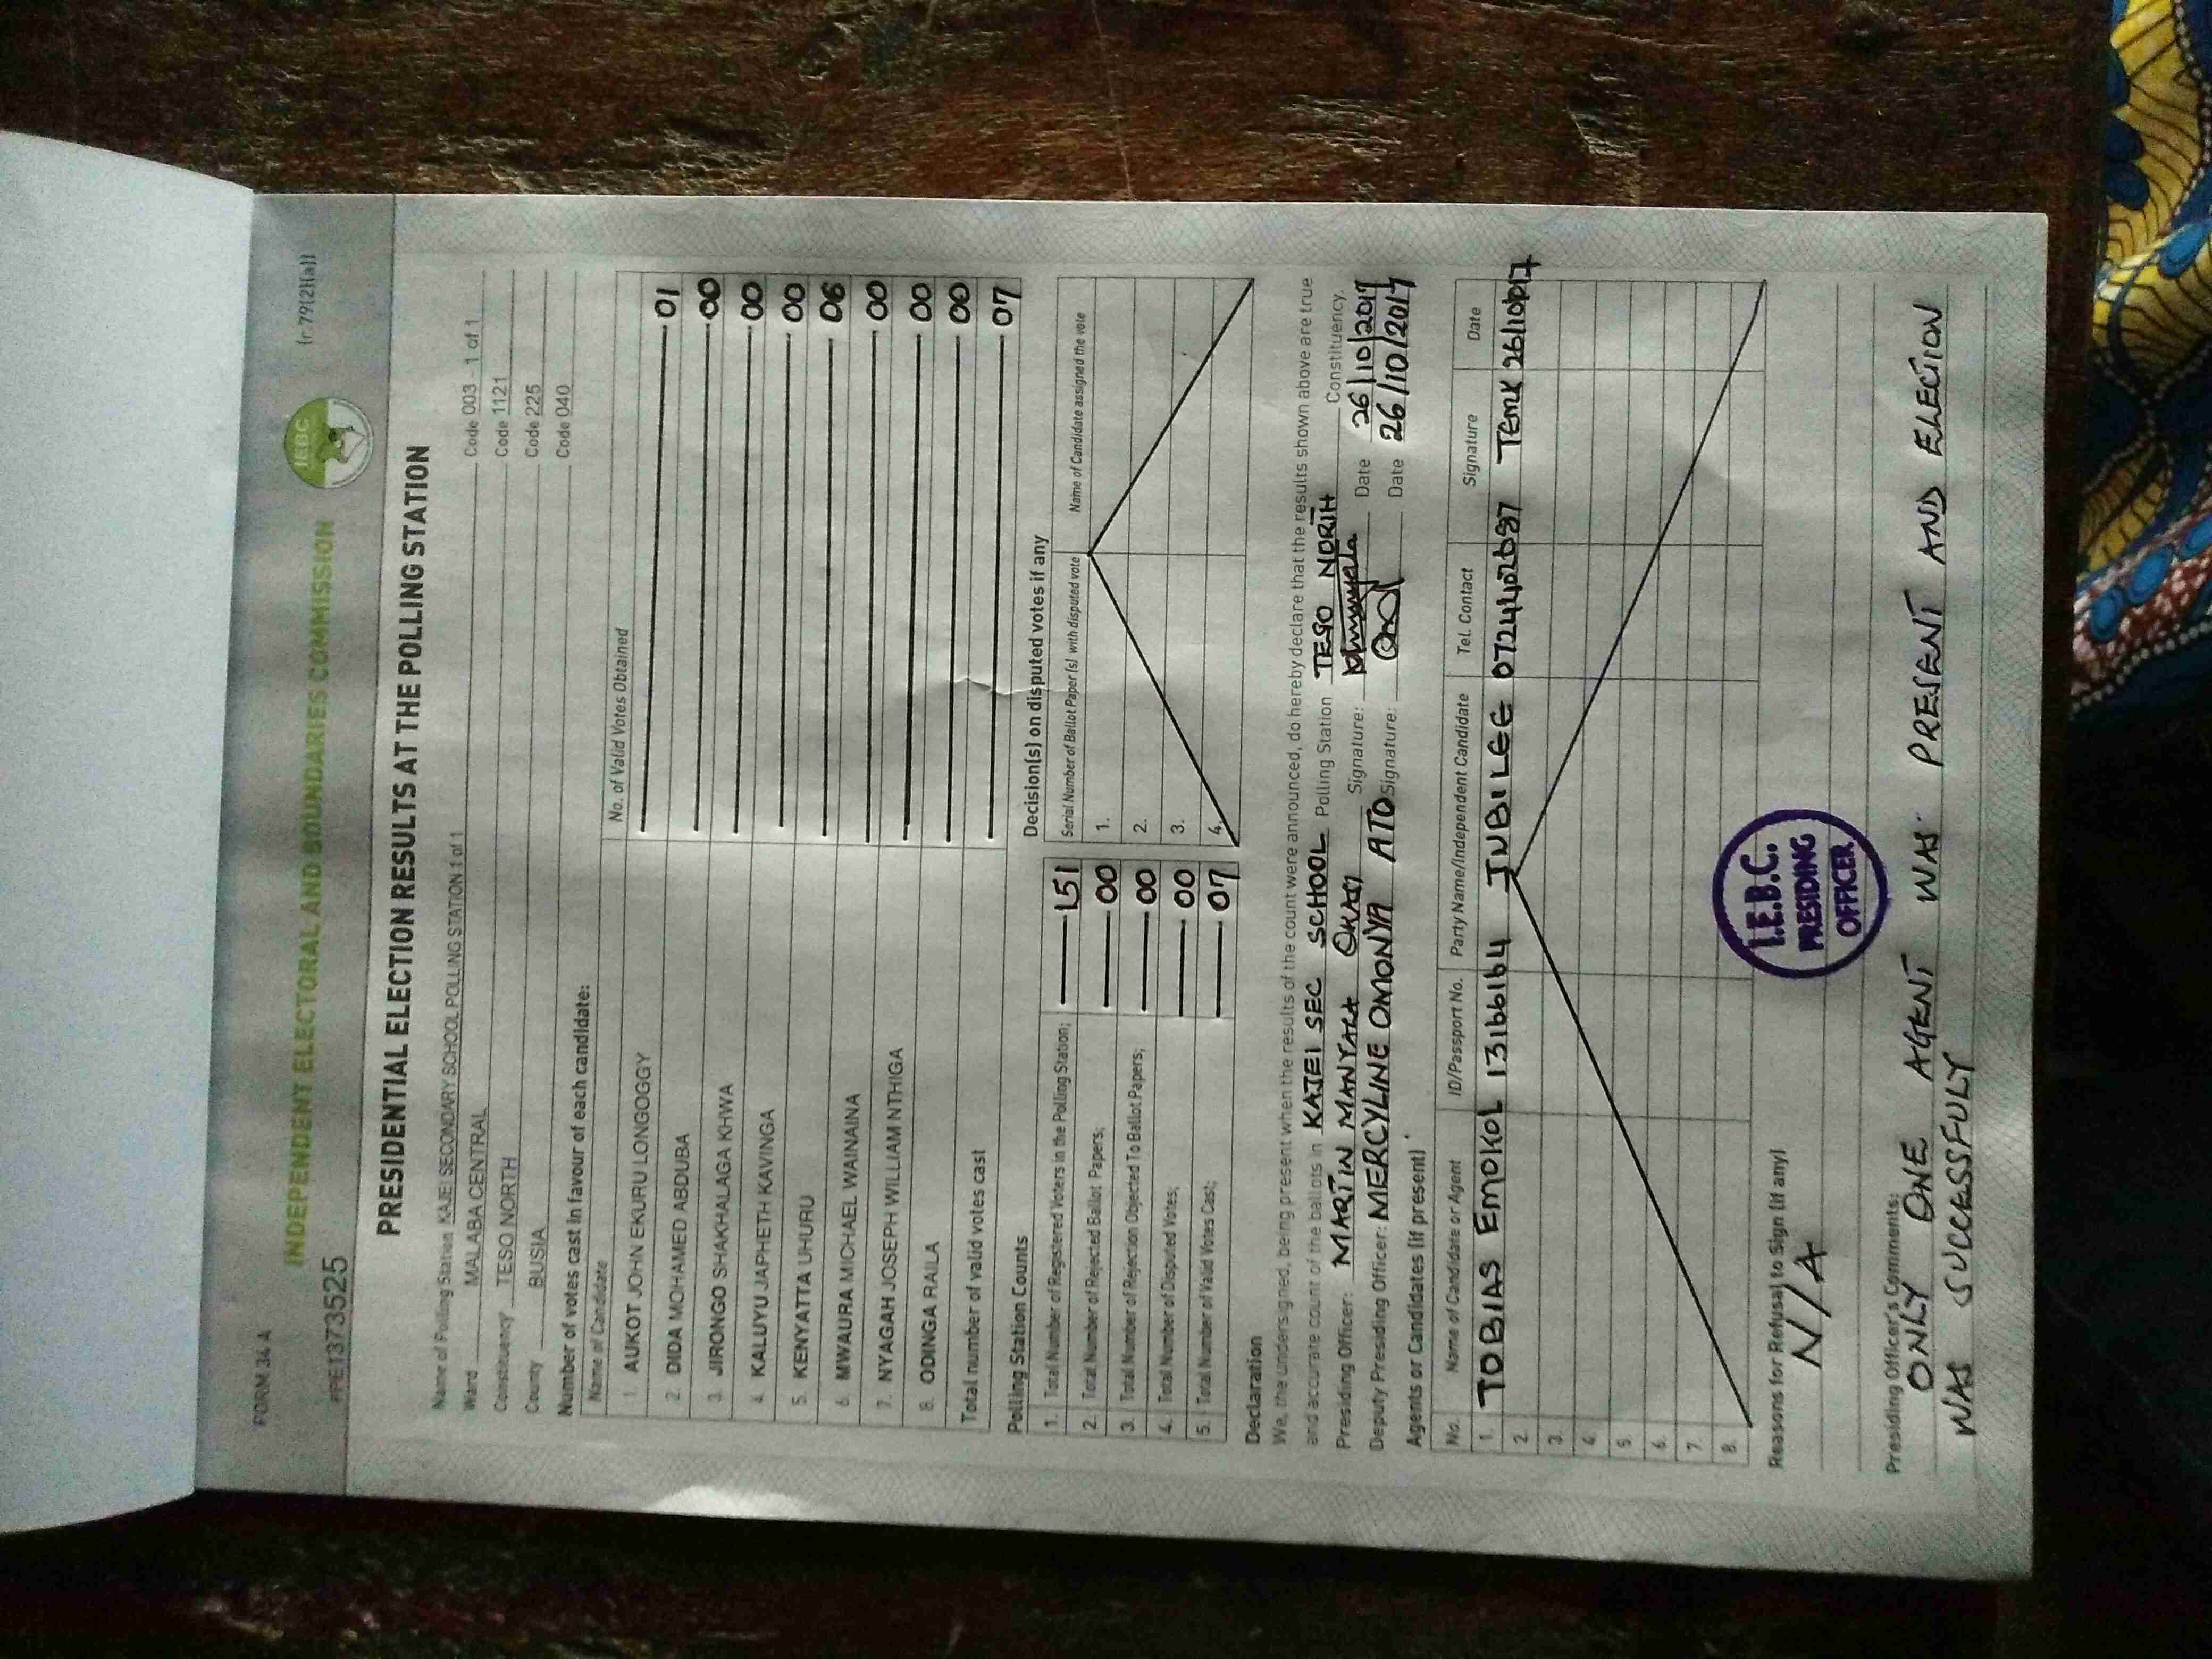 FORM 34 A
(r.79(2)(a))
INDEPENDENT ELECTORAL AND BOUNDARIES COMMISSION
IEBC
PRE1373525
PRESIDENTIAL ELECTION RESULTS AT THE POLLING STATION
Name of Polling Station KAJEI SECONDARY SCHOOL POLLING STATION 1 of 1 Code 003 1 of 1
Ward MALABA CENTRAL Code 1121
Constituency TESO NORTH Code 225
County BUSIA Code 040
Number of votes cast in favour of each candidate:
Name of Candidate No. of Valid Votes Obtained
1. AUKOT JOHN EKURU LONGOGGY 01
2 DIDA MOHAMED ABDUBA 00
3. JIRONGO SHAKHALAGA KHWA 00
4 KALUYU JAPHETH KAVINGA 00
5 KENYATTA UHURU 06
6 MWAURA MICHAEL WAINAINA 00
7. NYAGAH JOSEPH WILLIAM NTHIGA 00
8. ODINGA RAILA 00
Total number of valid votes cast 07
Polling Station Counts
1. Total Number of Registered Voters in the Polling Station;
2. Total Number of Rejected Ballot Papers; 00
3. Total Number of Rejection Objected To Ballot Papers; 00
4. Total Number of Disputed Votes; 00
5. Total Number of Valid Votes Cast; 07
Decision(s) on disputed votes if any
Serial Number of Ballot Paper (s) with disputed vote Name of Candidate assigned the vote
1.
2.
3.
4.
Declaration
We, the undersigned, being present when the results of the count were announced, do hereby declare that the results shown above are true
and accurate count of the ballots in KAJEI SEC SCHOOL Polling Station TESO NORTH Constituency.
Presiding Officer: MARTIN MANYARA Signature: Date 26/10/2017
Deputy Presiding Officer: MERCYLINE OMONYA ATO Signature: Date 26/10/2017
Agents or Candidates (if present)
No. Name of Candidate or Agent ID/Passport No. Party Name/Independent Candidate Tel. Contact Signature Date
1. TOBIAS EMOKOL 13166164 JUBILEE 26/10/2017
2.
3.
4.
5.
6.
7.
8.
Reasons for Refusal to Sign (if any)
N/A
I.E.B.C.
PRESIDING
OFFICER
Presiding Officer's Comments:
ONLY ONE AGENT WAS PRESENT AND ELECTION
WAS SUCCESSFULY